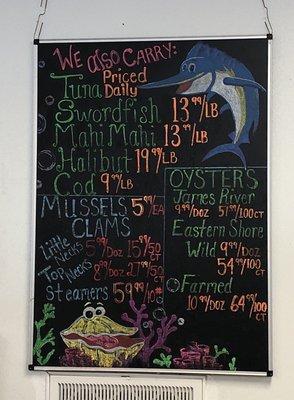 WE ALSO CARRY:
Tuna Priced Daily
Swordfish 13.99/LB
Mahi Mahi 13.99/LB
Halibut 19.99/LB
Cod 9.99/LB
MUSSELS 5.99/EA
CLAMS
Little Necks 5.99/DOZ 15.99/50 CT
TOP NECKS 8.99/DOZ 27.99/50 CT
Steamers 59.99/10#
OYSTERS
James River
9.99/DOZ 57.99/100CT
Eastern Shore
Wild 9.99/DOZ
54.99/100 CT
Farmed
10.99/DOZ 64.99/100 CT